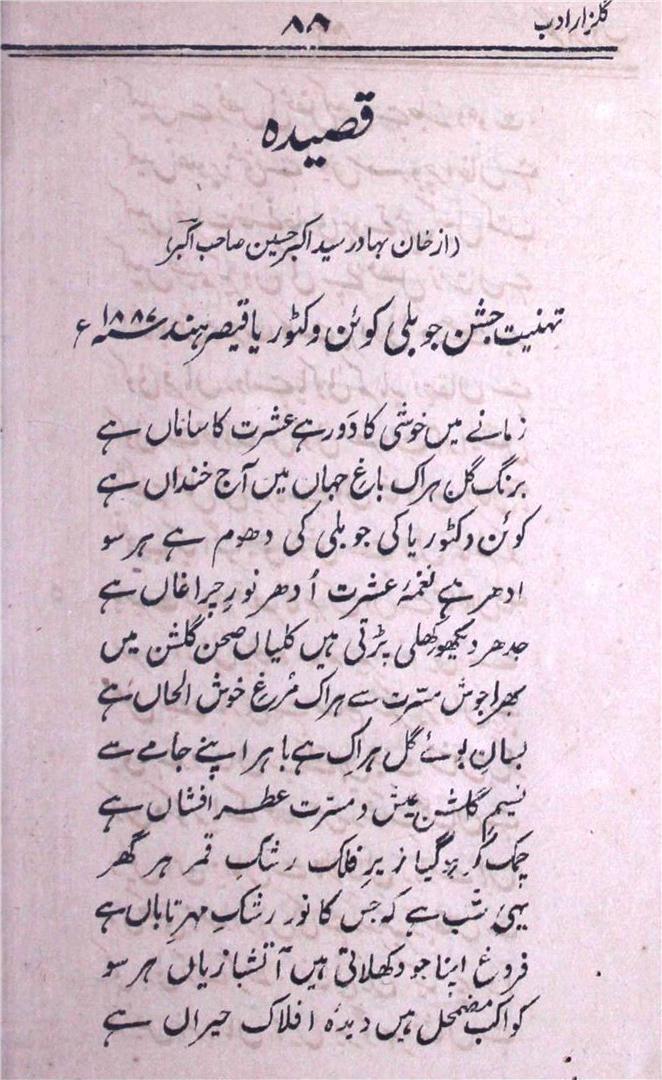 گلزار ادب
۸۸
قصیدہ
(از خان بہادر سید اکبر حسین صاحب اکبر)
تہنیت جشن جوبلی کوئن وکٹوریا قیصر ہند سنہ ۱۸۸۷ء
زمانے میں خوشی کا دَور ہے عشرت کا ساماں ہے
برنگ گل ہر اک باغِ جہاں میں آج خنداں ہے
کوئن وکٹوریا کی جوبلی کی دھوم ہے ہر سو
ادھر ہے نغمۂ عشرت اُدھر نورِ چراغاں ہے
جدھر دیکھو کھلی پڑتی ہیں کلیاں صحن گلشن میں
بھرا جوش مسرت سے ہر اک مُرغ خوش الحاں ہے
بسانِ بوئے گل ہر اک ہے باہر اپنے جامے سے
نسیم گلشن عیش و مسرت عطر افشاں ہے
چمک کر ہو گیا زیرِ فلک رشک قمر ہر گھر
یہی شب ہے کہ جس کا نور رشکِ مہر تاباں ہے
فروغ اپنا جو دکھلاتی ہیں آتشبازیاں ہر سو
کواکب مضمحل ہیں دیدہ افلاک حیراں ہے